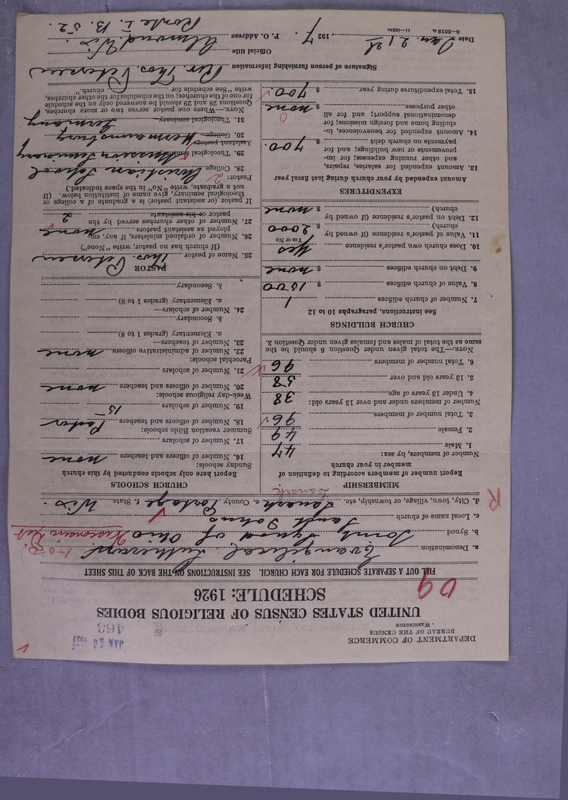 DEPARTMENT OF COMMERCE
BUREAU OF THE CENSUS
WASHINGTON
JAN 24 1927
463
UNITED STATES CENSUS OF RELIGIOUS BODIES
SCHEDULE: 1926
69
FILL OUT A SEPARATE SCHEDULE FOR EACH CHURCH. SEE INSTRUCTIONS ON THE BACK OF THIS SHEET
a. Denomination Evangelical Lutheran
b. Synod Joint Synod of Ohio
c. Local name of church Saint Johns
d. City, town, village, or township, etc. Lanark e. County Portage f. State Wis.
Lanark
R
MEMBERSHIP
Report number of members according to definition of
member in your church
Number of members, by sex:
1. Male 47
2. Female 49
3. Total number of members 96
Number of members under and over 13 years old:
4. Under 13 years of age 38
5. 13 years old and over 58
6. Total number of members 96
NOTE.—The total given under Question 6 should be the
same as the total of males and females given under Question 3.
CHURCH BUILDINGS
See Instructions, paragraphs 10 to 12
7. Number of church edifices 1
8. Value of church edifices $ 1500
9. Debt on church edifices $ none
10. Does church own pastor's residence Yes
Yes or No
11. Value of pastor's residence (if owned by
church) $ 2000
12. Debt on pastor's residence (if owned by
church) $ none
EXPENDITURES
Amount expended by your church during last fiscal year
13. Amount expended for salaries, repairs,
and other running expenses; for im-
provements or new buildings; and for
payments on church debt $ 700.
14. Amount expended for benevolences, in-
cluding home and foreign missions; for
denominational support; and for all
other purposes $ none
0
15. Total expenditures during year $ 700
CHURCH SCHOOLS
Report here only schools conducted by this church
Sunday schools:
16. Number of officers and teachers none
17. Number of scholars
Summer vacation Bible schools:
18. Number of officers and teachers Pastor
19. Number of scholars 15
Week-day religious schools:
20. Number of officers and teachers none
21. Number of scholars
Parochial schools:
22. Number of administrative officers none
23. Number of teachers—
a. Elementary (grades 1 to 8)
b. Secondary
24. Number of scholars—
a. Elementary (grades 1 to 8)
b. Secondary
PASTOR
25. Name of pastor Thos. Petersen
(If church has no pastor, write "None")
26. Number of assistant ministers, if any, em-
ployed as assistants none
27. Number of other churches served by the
pastor 2
If pastor (or assistant pastor) is a graduate of a college or
theological seminary, give name of institution below. (If
not a graduate, write "No" in the space indicated.)
Pastor:
28. College Christian School
29. Theological Mission Seminary
Assistant pastor:
30. College Hermannsburg
31. Theological seminary Germany
NOTE.—Where one pastor serves two or more churches,
Questions 28 and 29 should be answered only on the schedule
for one of the churches; on the schedules for the other churches,
write "See schedule for church."
Signature of person furnishing information Rev. Thos. Petersen
Official title
P. O. Address Almond, Wis.
Route 1. B. 52.
Date Jan. 21st, 1927